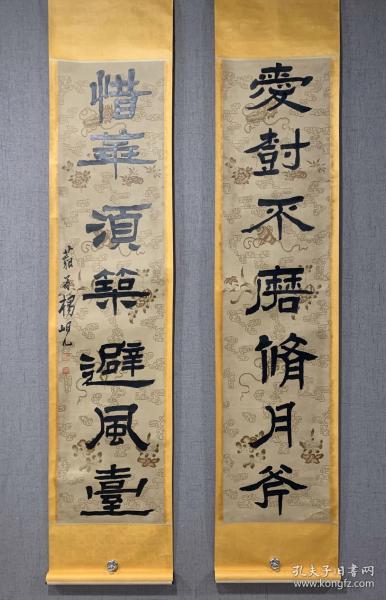 愛對不磨脩月斧
惜華須築避風臺
藐翁楊峴
孔夫子旧书网
www.kongfz.com